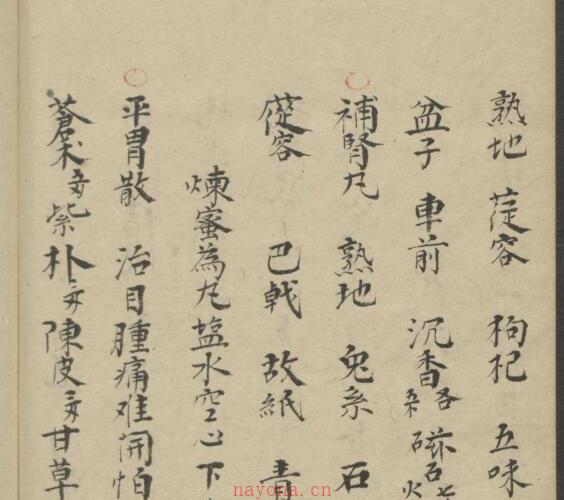 熟地 蓯容 枸杞 五味
盆子 車前 沉香各 磁石七 火
補腎丸 熟地 兔糸 石
蓯容 巴戟 故紙 青
煉蜜為丸塩水空心下
平胃散 治目腫痛难開怕
蒼术 紫朴 陳皮 甘草
nayona.cn